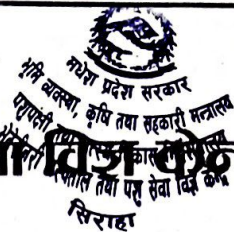 मधेश प्रदेश सरकार
भूमि व्यवस्था, कृषि तथा सहकारी मन्त्रालय
पशुपंछी तथा
तथा पशु सेवा विज्ञ केन्द्र
सिराहा
विज्ञ केन्